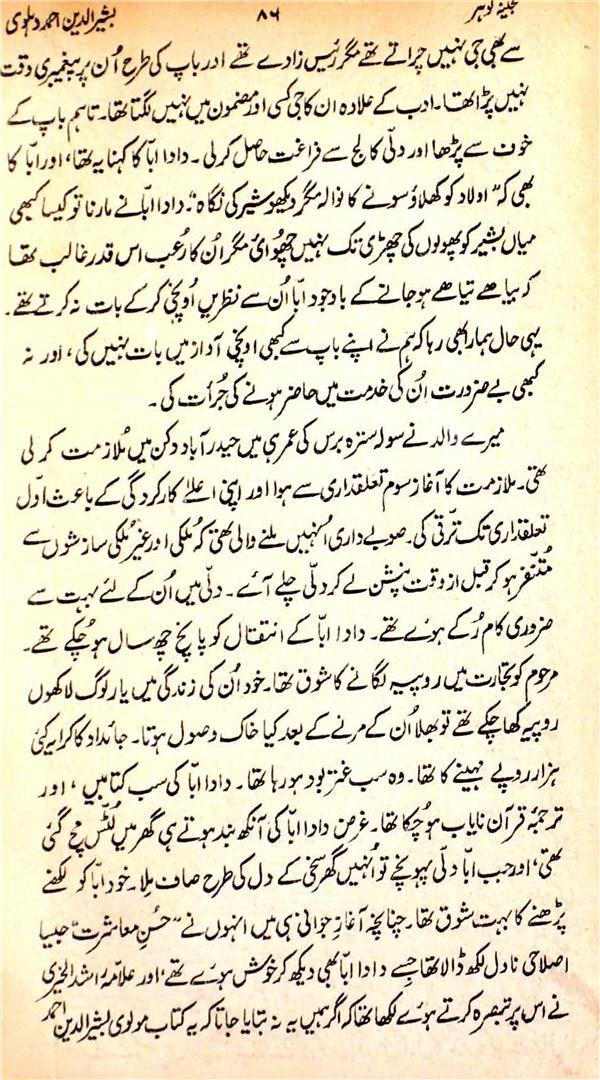 گنجینۂ گوہر ۸۶ بشیر الدین احمد دہلوی
سے بھی جی نہیں چراتے تھے مگر رئیس زادے تھے اور باپ کی طرح اُن پر پیغمبری وقت
نہیں پڑا تھا۔ ادب کے علاوہ ان کا جی کسی اور مضمون میں نہیں لگتا تھا۔ تاہم باپ کے
خوف سے پڑھا اور دلّی کالج سے فراغت حاصل کر لی۔ دادا ابّا کا کہنا یہ تھا، اور ابّا کا
بھی کہ "اولاد کو کھلاؤ سونے کا نوالہ مگر دیکھو شیر کی نگاہ"۔ دادا ابّا نے مارنا تو کیسا کبھی
میاں بشیر کو پھولوں کی چھڑی تک نہیں چھوائی مگر اُن کا رُعب اس قدر غالب تھا
کہ بیاہے تیاہے ہو جانے کے باوجود ابّا اُن سے نظریں اُونچی کر کے بات نہ کرتے تھے۔
یہی حال ہمارا بھی رہا کہ ہم نے اپنے باپ سے کبھی اونچی آواز میں بات نہیں کی، اور نہ
کبھی بے ضرورت اُن کی خدمت میں حاضر ہونے کی جرأت کی۔
میرے والد نے سولہ سترہ برس کی عمر ہی میں حیدرآباد دکن میں مُلازمت کر لی
تھی۔ ملازمت کا آغاز سوم تعلقداری سے ہوا اور اپنی اعلےٰ کارکردگی کے باعث اوّل
تعلقداری تک ترّقی کی۔ صوبے داری اُنہیں ملنے والی تھی کہ مُلکی اور غیر مُلکی سازشوں سے
مُتنفّر ہو کر قبل از وقت پنشن لے کر دلّی چلے آئے۔ دلّی میں اُن کے لئے بہت سے
ضروری کام رُکے ہوئے تھے۔ دادا ابّا کے انتقال کو پانچ چھ سال ہو چکے تھے۔
مرحوم کو تجارت میں روپیہ لگانے کا شوق تھا۔ خود اُن کی زندگی میں یار لوگ لاکھوں
روپیہ کھا چکے تھے تو بھلا اُن کے مرنے کے بعد کیا خاک وصول ہوتا۔ جائداد کا کرایہ کئی
ہزار روپے مہینے کا تھا۔ وہ سب غتر بود ہو رہا تھا۔ دادا ابّا کی سب کتابیں، اور
ترجمۂ قرآن نایاب ہو چکا تھا۔ غرض دادا ابّا کی آنکھ بند ہوتے ہی گھر میں لُٹّس مچ گئی
تھی، اور جب ابّا دلّی پہونچے تو اُنہیں گھر سخی کے دل کی طرح صاف مِلا۔ خود ابّا کو لکھنے
پڑھنے کا بہت شوق تھا۔ چنانچہ آغازِ جوانی ہی میں انہوں نے "حُسنِ معاشرت" جیسا
اصلاحی ناول لکھ ڈالا تھا جسے دادا ابّا بھی دیکھ کر خوش ہوئے تھے، اور علاّمہ راشد الخیری
نے اس پر تبصرہ کرتے ہوئے لکھا تھا کہ اگر ہمیں یہ نہ بتایا جاتا کہ یہ کتاب مولوی بشیر الدین احمد